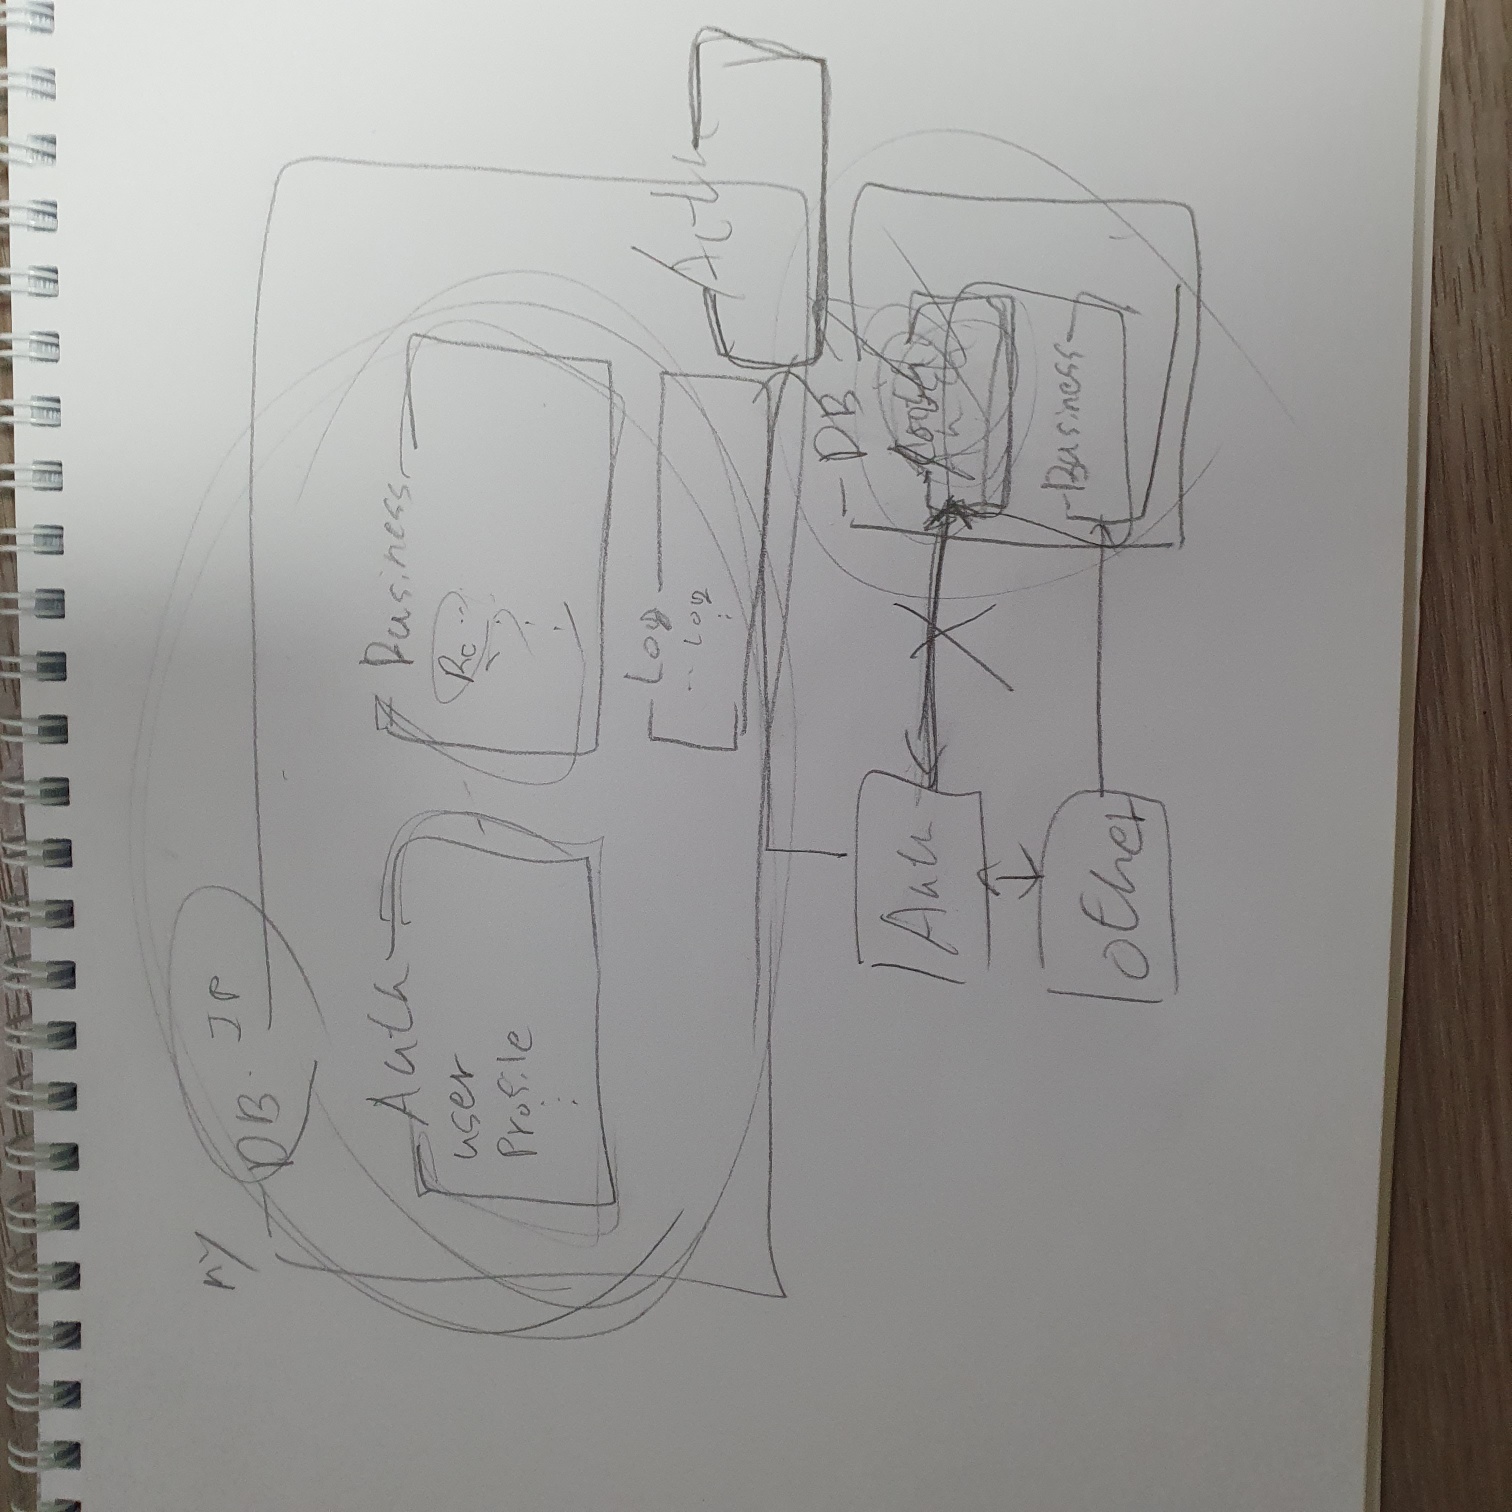 my
DB. JP
Auth
user
Profile
Business
Log
Log
Auth
DB
Auth
Business
Auth
other